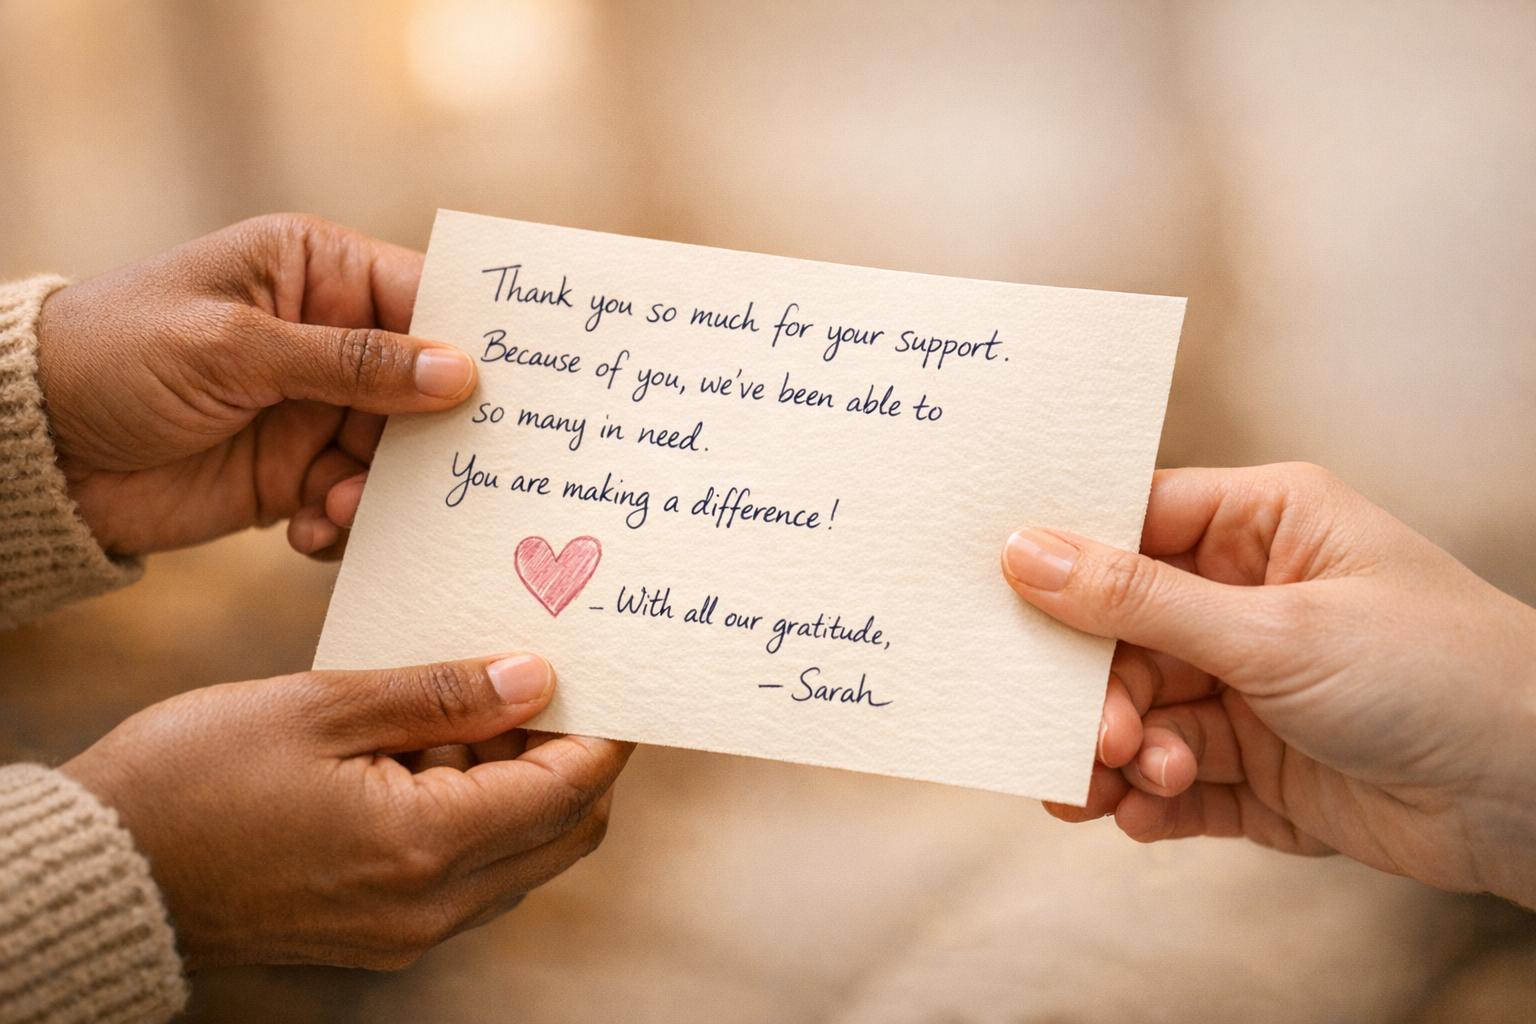 Thank you so much for your support.
Because of you, we've been able to
so many in need.
You are making a difference!
– With all our gratitude,
– Sarah